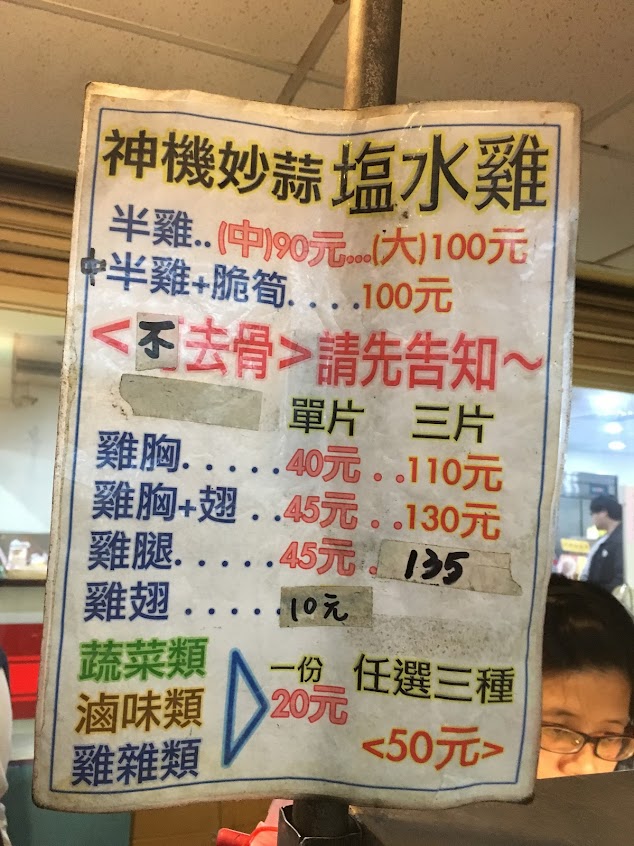 神機妙蒜塩水雞
半雞..(中)90元...(大)100元
中半雞+脆筍....100元
<不去骨>請先告知～
單片 三片
雞胸.....40元..110元
雞胸+翅..45元..130元
雞腿.....45元.135
雞翅.....10元
蔬菜類
滷味類
雞雜類
一份 任選三種
20元 <50元>